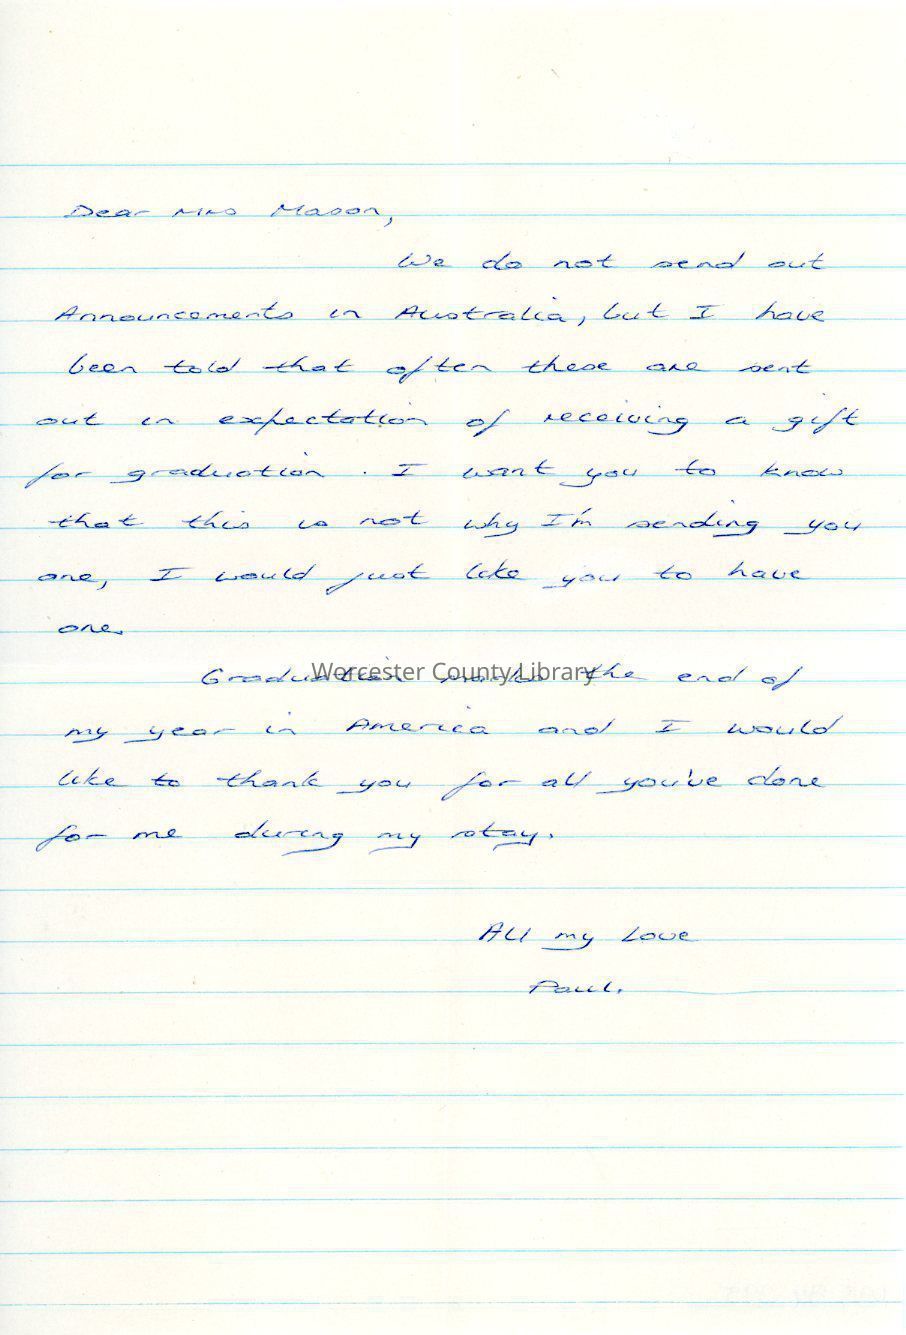 Dear Mrs Mason,
We do not send out
Announcements in Australia, but I have
been told that often these are sent
out in expectation of receiving a gift
for graduation. I want you to know
that this is not why I'm sending you
one, I would just like you to have
one.
Graduation marks the end of
Worcester County Library
my year in America and I would
like to thank you for all you've done
for me during my stay.
All my Love
Paul.